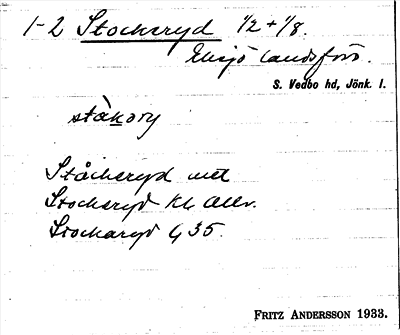 1-2 Stockeryd 1/2 + 1/8.
Eksjö landsförs.
S. Vedbo hd, Jönk. l.
ståkory
Ståckeryd
Stockeryd
Stockaryd G 35.
FRITZ ANDERSSON 1933.